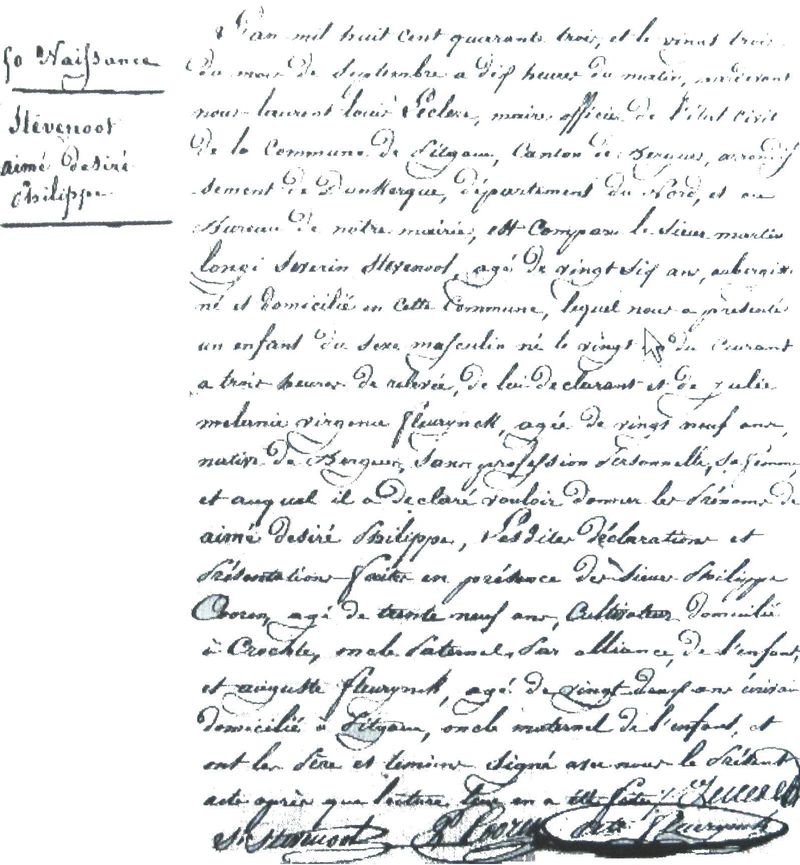 50 Naissance
Stévenoot
aimé desiré
Philippe
L'an mil huit cent quarante trois, et le vingt trois
du mois de Septembre a dix heures du matin, pardevant
nous laurent louis Leclerc, maire officier de l'état civil
de la Commune de Pitgam, Canton de Bergues, arrondis
sement de Dunkerque, département du Nord, et au
Bureau de nôtre mairie, est Comparu le Sieur martin
Severin Stévenoot, agé de vingt six ans, aubergiste
né et domicilié en cette Commune, lequel nous a présenté
un enfant du sexe masculin né le vingt du Courant
a trois heures de relevée, de lui déclarant et de julie
melanie virginie fleurynck, agée de vingt neuf ans,
native de Bergues, sans profession Personnelle, sa femme
et auquel il a declaré vouloir donner les Prénoms de
aimé desiré Philippe, Lesdites déclarations et
Présentations faites en présence des Sieurs Philippe
Cooren, agé de trente neuf ans, Cultivateur domicilié
à Crochte, oncle Paternel, Par alliance, de l'enfant,
et auguste fleurynck, agé de vingt ans écrivain
domicilié à Pitgam, oncle maternel de l'enfant, et
ont les Père et temoins signé avec nous le Présent
acte après que lecture leur en a été faite.
Stevenoot P. Cooren fleurynck